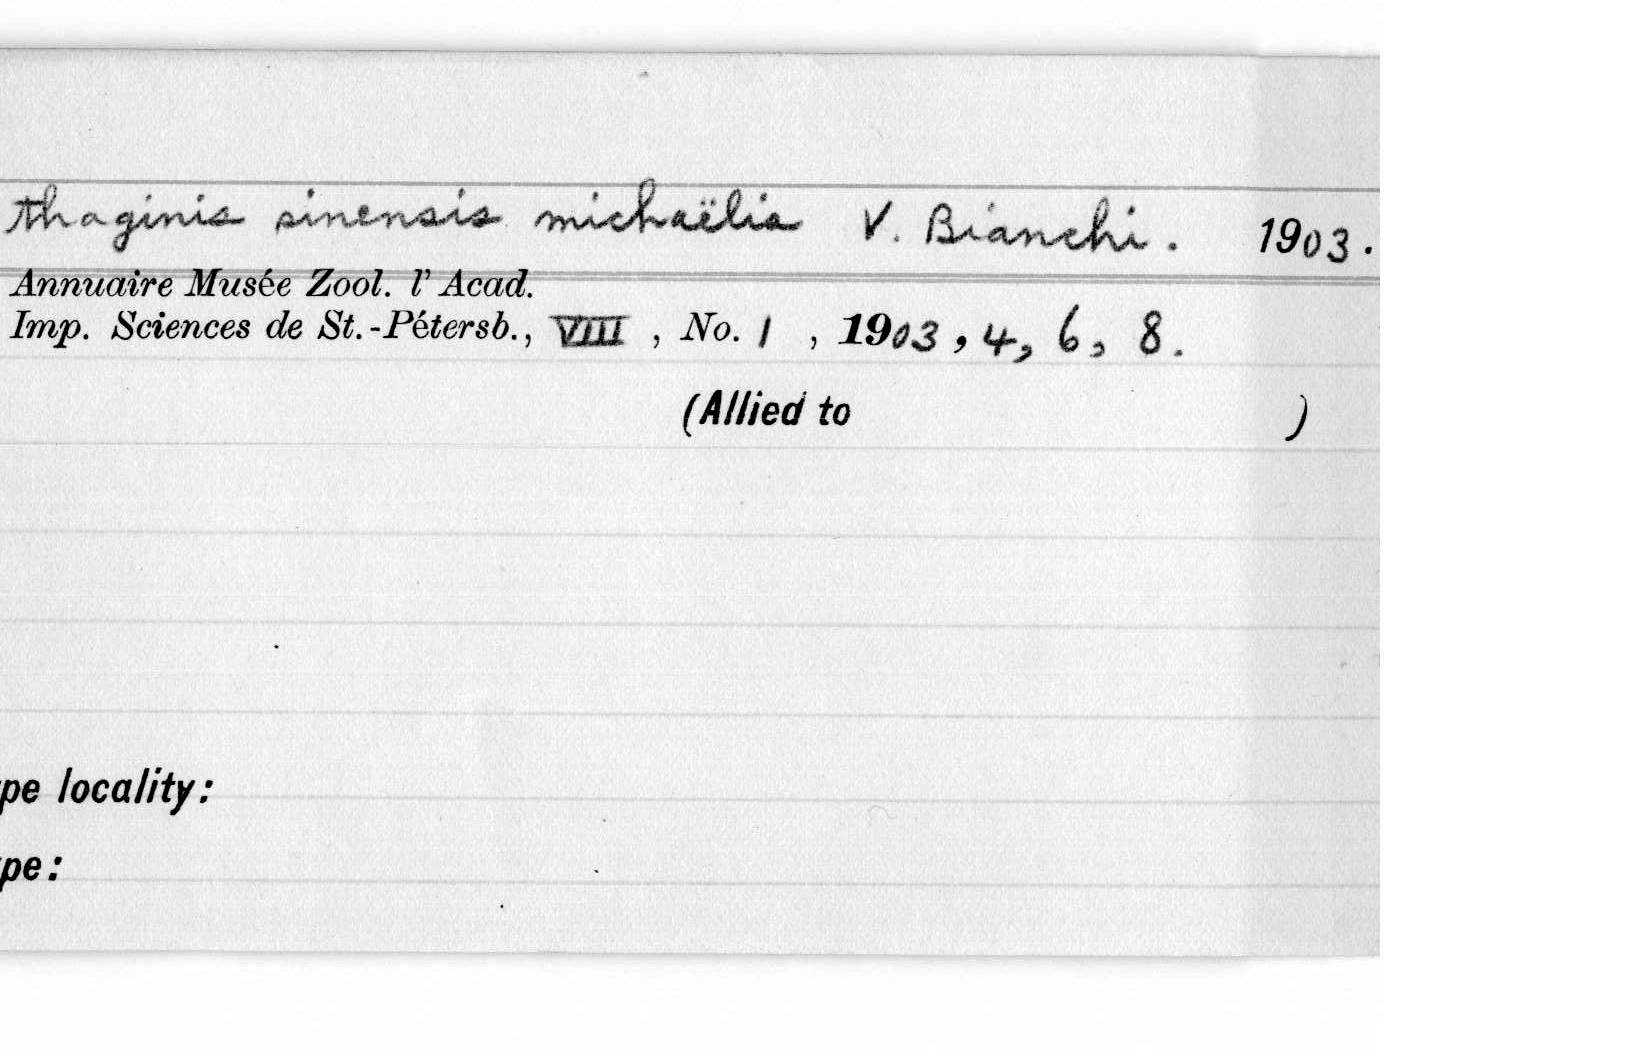 thaginis sinensis michaëlis V. Bianchi. 1903.
Annuaire Musée Zool. l' Acad.
Imp. Sciences de St.-Pétersb., VIII, No. 1, 1903, 4, 6, 8.
(Allied to )
pe locality:
pe: